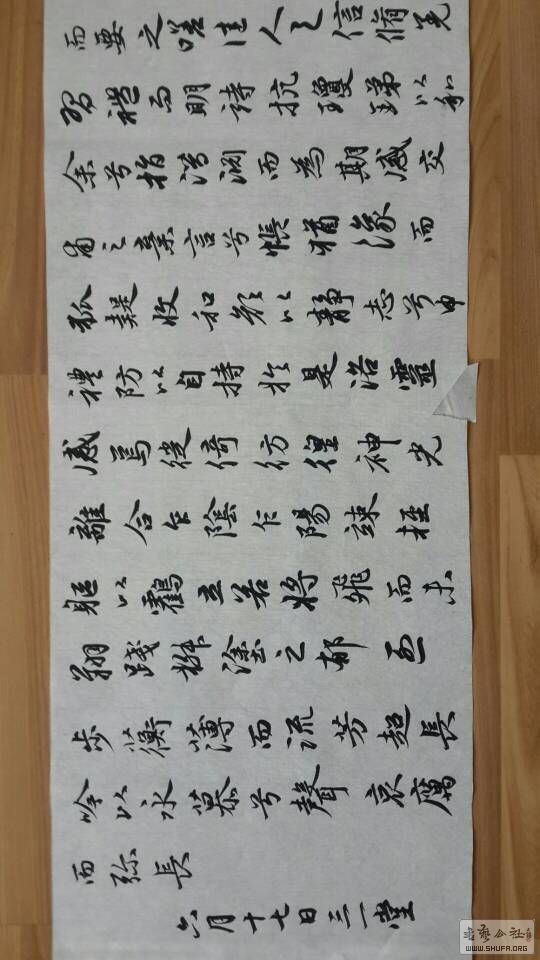 而要之嗟佳人之信脩羌
習禮而明詩抗瓊珶以和
余兮指潛淵而為期感交
甫之棄言兮悵猶豫而
狐疑收和顏以靜志兮申
禮防以自持於是洛靈
感焉徙倚彷徨神光
離合乍陰乍陽竦輕
軀以鶴立若將飛而未
翔踐椒塗之郁烈
步蘅薄而流芳超長
吟以永慕兮聲哀厲
而弥長
六月十七日三一堂
WWW.SHUFA.ORG